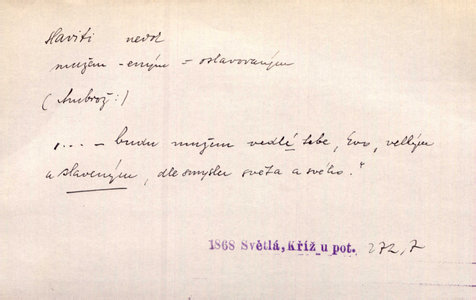 slaviti nedok
mužem -eným = oslavovaným
(Ambrož:)
"... – budu mužem vedlé tebe, Evo, velkým
a slaveným, dle smyslu světa a svého."
1868 Světlá, Kříž u pot. 272,7